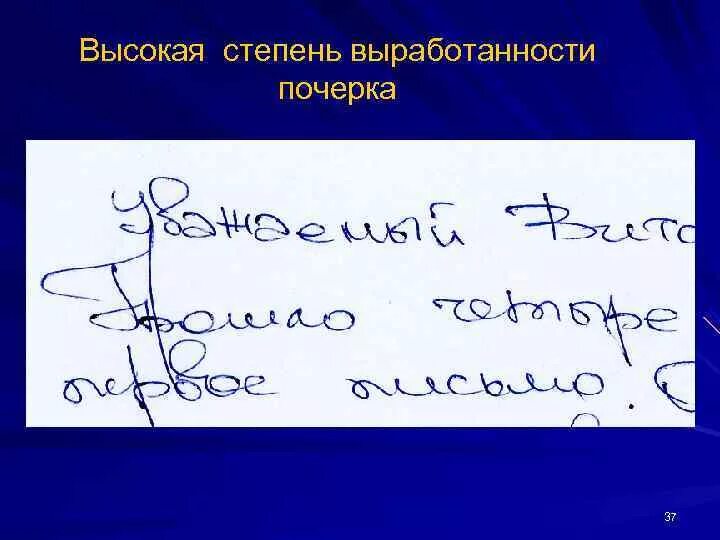 Высокая степень выработанности
почерка
Уважаемый Вита
Прошло четыре
первое письмо.
37